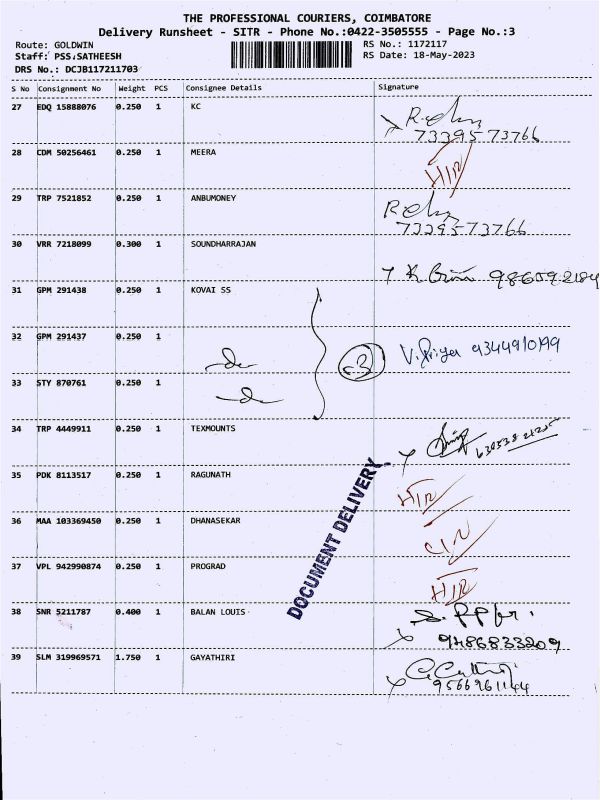 THE PROFESSIONAL COURIERS, COIMBATORE
Delivery Runsheet - SITR - Phone No.:0422-3505555 - Page No.:3
Route: GOLDWIN RS No.: 1172117
Staff: PSS.SATHEESH RS Date: 18-May-2023
DRS No.: DCJB117211703
S No Consignment No Weight PCS Consignee Details Signature
27 EDQ 15888076 0.250 1 KC
73395 73766
28 CDM 50256461 0.250 1 MEERA
29 TRP 7521852 0.250 1 ANBUMONEY
73395-73766
30 VRR 7218099 0.300 1 SOUNDHARRAJAN
31 GPM 291438 0.250 1 KOVAI SS
32 GPM 291437 0.250 1 V.Priya 9344910199
-do-
3
33 STY 870761 0.250 1
-do-
34 TRP 4449911 0.250 1 TEXMOUNTS
35 PDK 8113517 0.250 1 RAGUNATH
36 MAA 103369450 0.250 1 DHANASEKAR
37 VPL 942990874 0.250 1 PROGRAD
DOCUMENT DELIVERY
38 SNR 5211787 0.400 1 BALAN LOUIS
9486833209
39 SLM 319969571 1.750 1 GAYATHIRI
9566961144